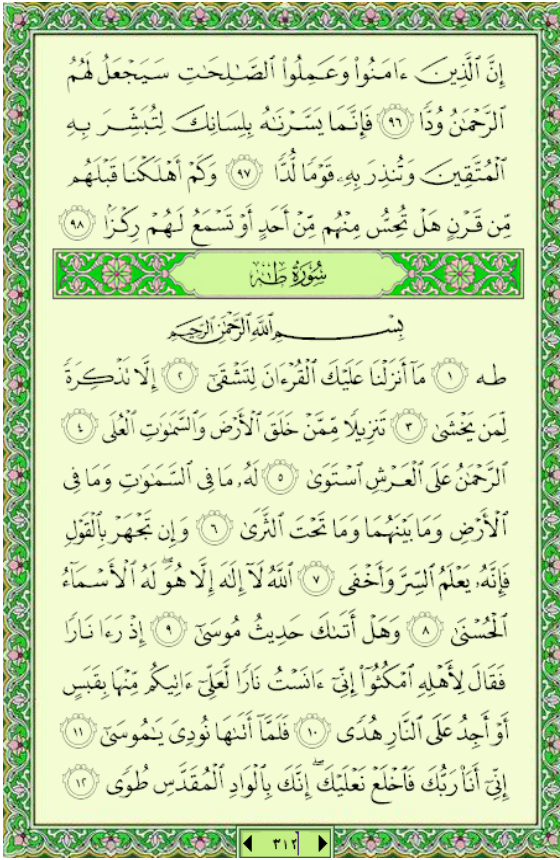 إِنَّ ٱلَّذِينَ ءَامَنُوا۟ وَعَمِلُوا۟ ٱلصَّـٰلِحَـٰتِ سَيَجْعَلُ لَهُمُ
ٱلرَّحْمَـٰنُ وُدًّا ٩٦ فَإِنَّمَا يَسَّرْنَـٰهُ بِلِسَانِكَ لِتُبَشِّرَ بِهِ
ٱلْمُتَّقِينَ وَتُنذِرَ بِهِۦ قَوْمًا لُّدًّا ٩٧ وَكَمْ أَهْلَكْنَا قَبْلَهُم
مِّن قَرْنٍ هَلْ تُحِسُّ مِنْهُم مِّنْ أَحَدٍ أَوْ تَسْمَعُ لَهُمْ رِكْزًۢا ٩٨
سُورَةُ طه
بِسْمِ ٱللَّهِ ٱلرَّحْمَـٰنِ ٱلرَّحِيمِ
طه ١ مَآ أَنزَلْنَا عَلَيْكَ ٱلْقُرْءَانَ لِتَشْقَىٰٓ ٢ إِلَّا تَذْكِرَةً
لِّمَن يَخْشَىٰ ٣ تَنزِيلًا مِّمَّنْ خَلَقَ ٱلْأَرْضَ وَٱلسَّمَـٰوَٰتِ ٱلْعُلَى ٤
ٱلرَّحْمَـٰنُ عَلَى ٱلْعَرْشِ ٱسْتَوَىٰ ٥ لَهُۥ مَا فِى ٱلسَّمَـٰوَٰتِ وَمَا فِى
ٱلْأَرْضِ وَمَا بَيْنَهُمَا وَمَا تَحْتَ ٱلثَّرَىٰ ٦ وَإِن تَجْهَرْ بِٱلْقَوْلِ
فَإِنَّهُۥ يَعْلَمُ ٱلسِّرَّ وَأَخْفَى ٧ ٱللَّهُ لَآ إِلَـٰهَ إِلَّا هُوَ ۖ لَهُ ٱلْأَسْمَآءُ
ٱلْحُسْنَىٰ ٨ وَهَلْ أَتَىٰكَ حَدِيثُ مُوسَىٰٓ ٩ إِذْ رَءَا نَارًا
فَقَالَ لِأَهْلِهِ ٱمْكُثُوٓا۟ إِنِّىٓ ءَانَسْتُ نَارًا لَّعَلِّىٓ ءَاتِيكُم مِّنْهَا بِقَبَسٍ
أَوْ أَجِدُ عَلَى ٱلنَّارِ هُدًى ١٠ فَلَمَّآ أَتَىٰهَا نُودِىَ يَـٰمُوسَىٰٓ ١١
إِنِّىٓ أَنَا۠ رَبُّكَ فَٱخْلَعْ نَعْلَيْكَ ۖ إِنَّكَ بِٱلْوَادِ ٱلْمُقَدَّسِ طُوًى ١٢
٣١٢